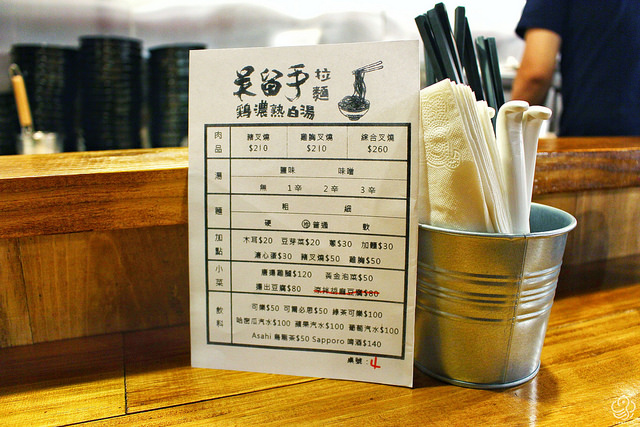 吳留手 拉麵
鷄濃熟白湯
肉品 豬叉燒 雞胸叉燒 綜合叉燒
$210 $210 $260
湯 鹽味 味噌
無 1辛 2辛 3辛
麵 粗 細
硬 普通 軟
加點 木耳$20 豆芽菜$20 蔥$30 加麵$30
溏心蛋$30 豬叉燒$50 雞胸$50
小菜 唐揚雞腿$120 黃金泡菜$50
揚出豆腐$80 涼拌胡麻豆腐$80
飲料 可樂$50 可爾必思$50 綠茶可樂$100
哈密瓜汽水$100 蘋果汽水$100 葡萄汽水$100
Asahi 烏龍茶$50 Sapporo 啤酒$140
桌號：4